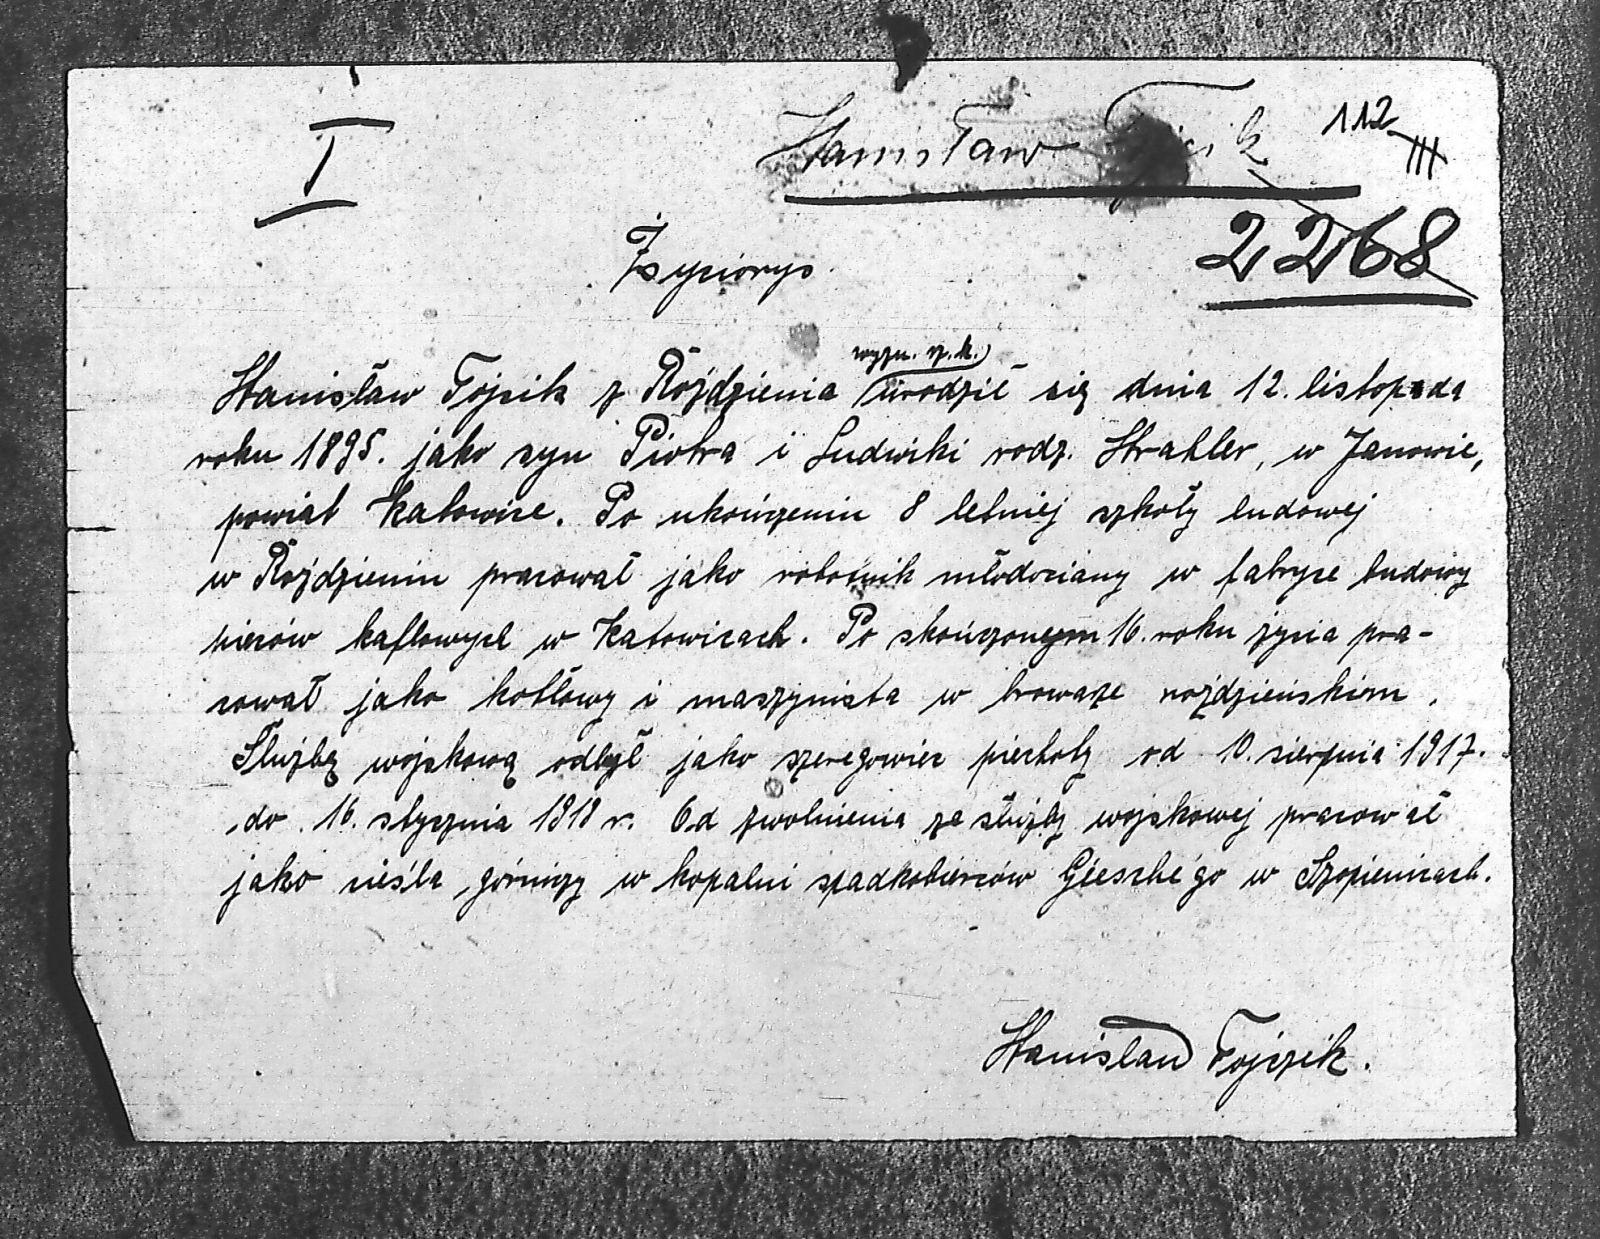 I
Stanisław
112
III
2268
Życiorys.
wyzn. rz. k.
Stanisław Tojcik z Roździenia urodził się dnia 12. listopada
roku 1895. jako syn Piotra i Ludwiki rodz. Strahler, w Janowie,
powiat Katowice. Po ukończeniu 8 letniej szkoły ludowej
w Roździeniu pracował jako robotnik młodociany w fabryce budowy
pieców kaflowych w Katowicach. Po skończonym 16. roku życia pra-
cował jako kotłowy i maszynista w browarze roździeńskim.
Służbę wojskową odbył jako szeregowiec piechoty od 10. sierpnia 1917.
do 16. stycznia 1919 r. Od zwolnienia ze służby wojskowej pracował
jako cieśla górniczy w kopalni spadkobierców Giesche'go w Szopienicach.
Stanisław Tojczik.